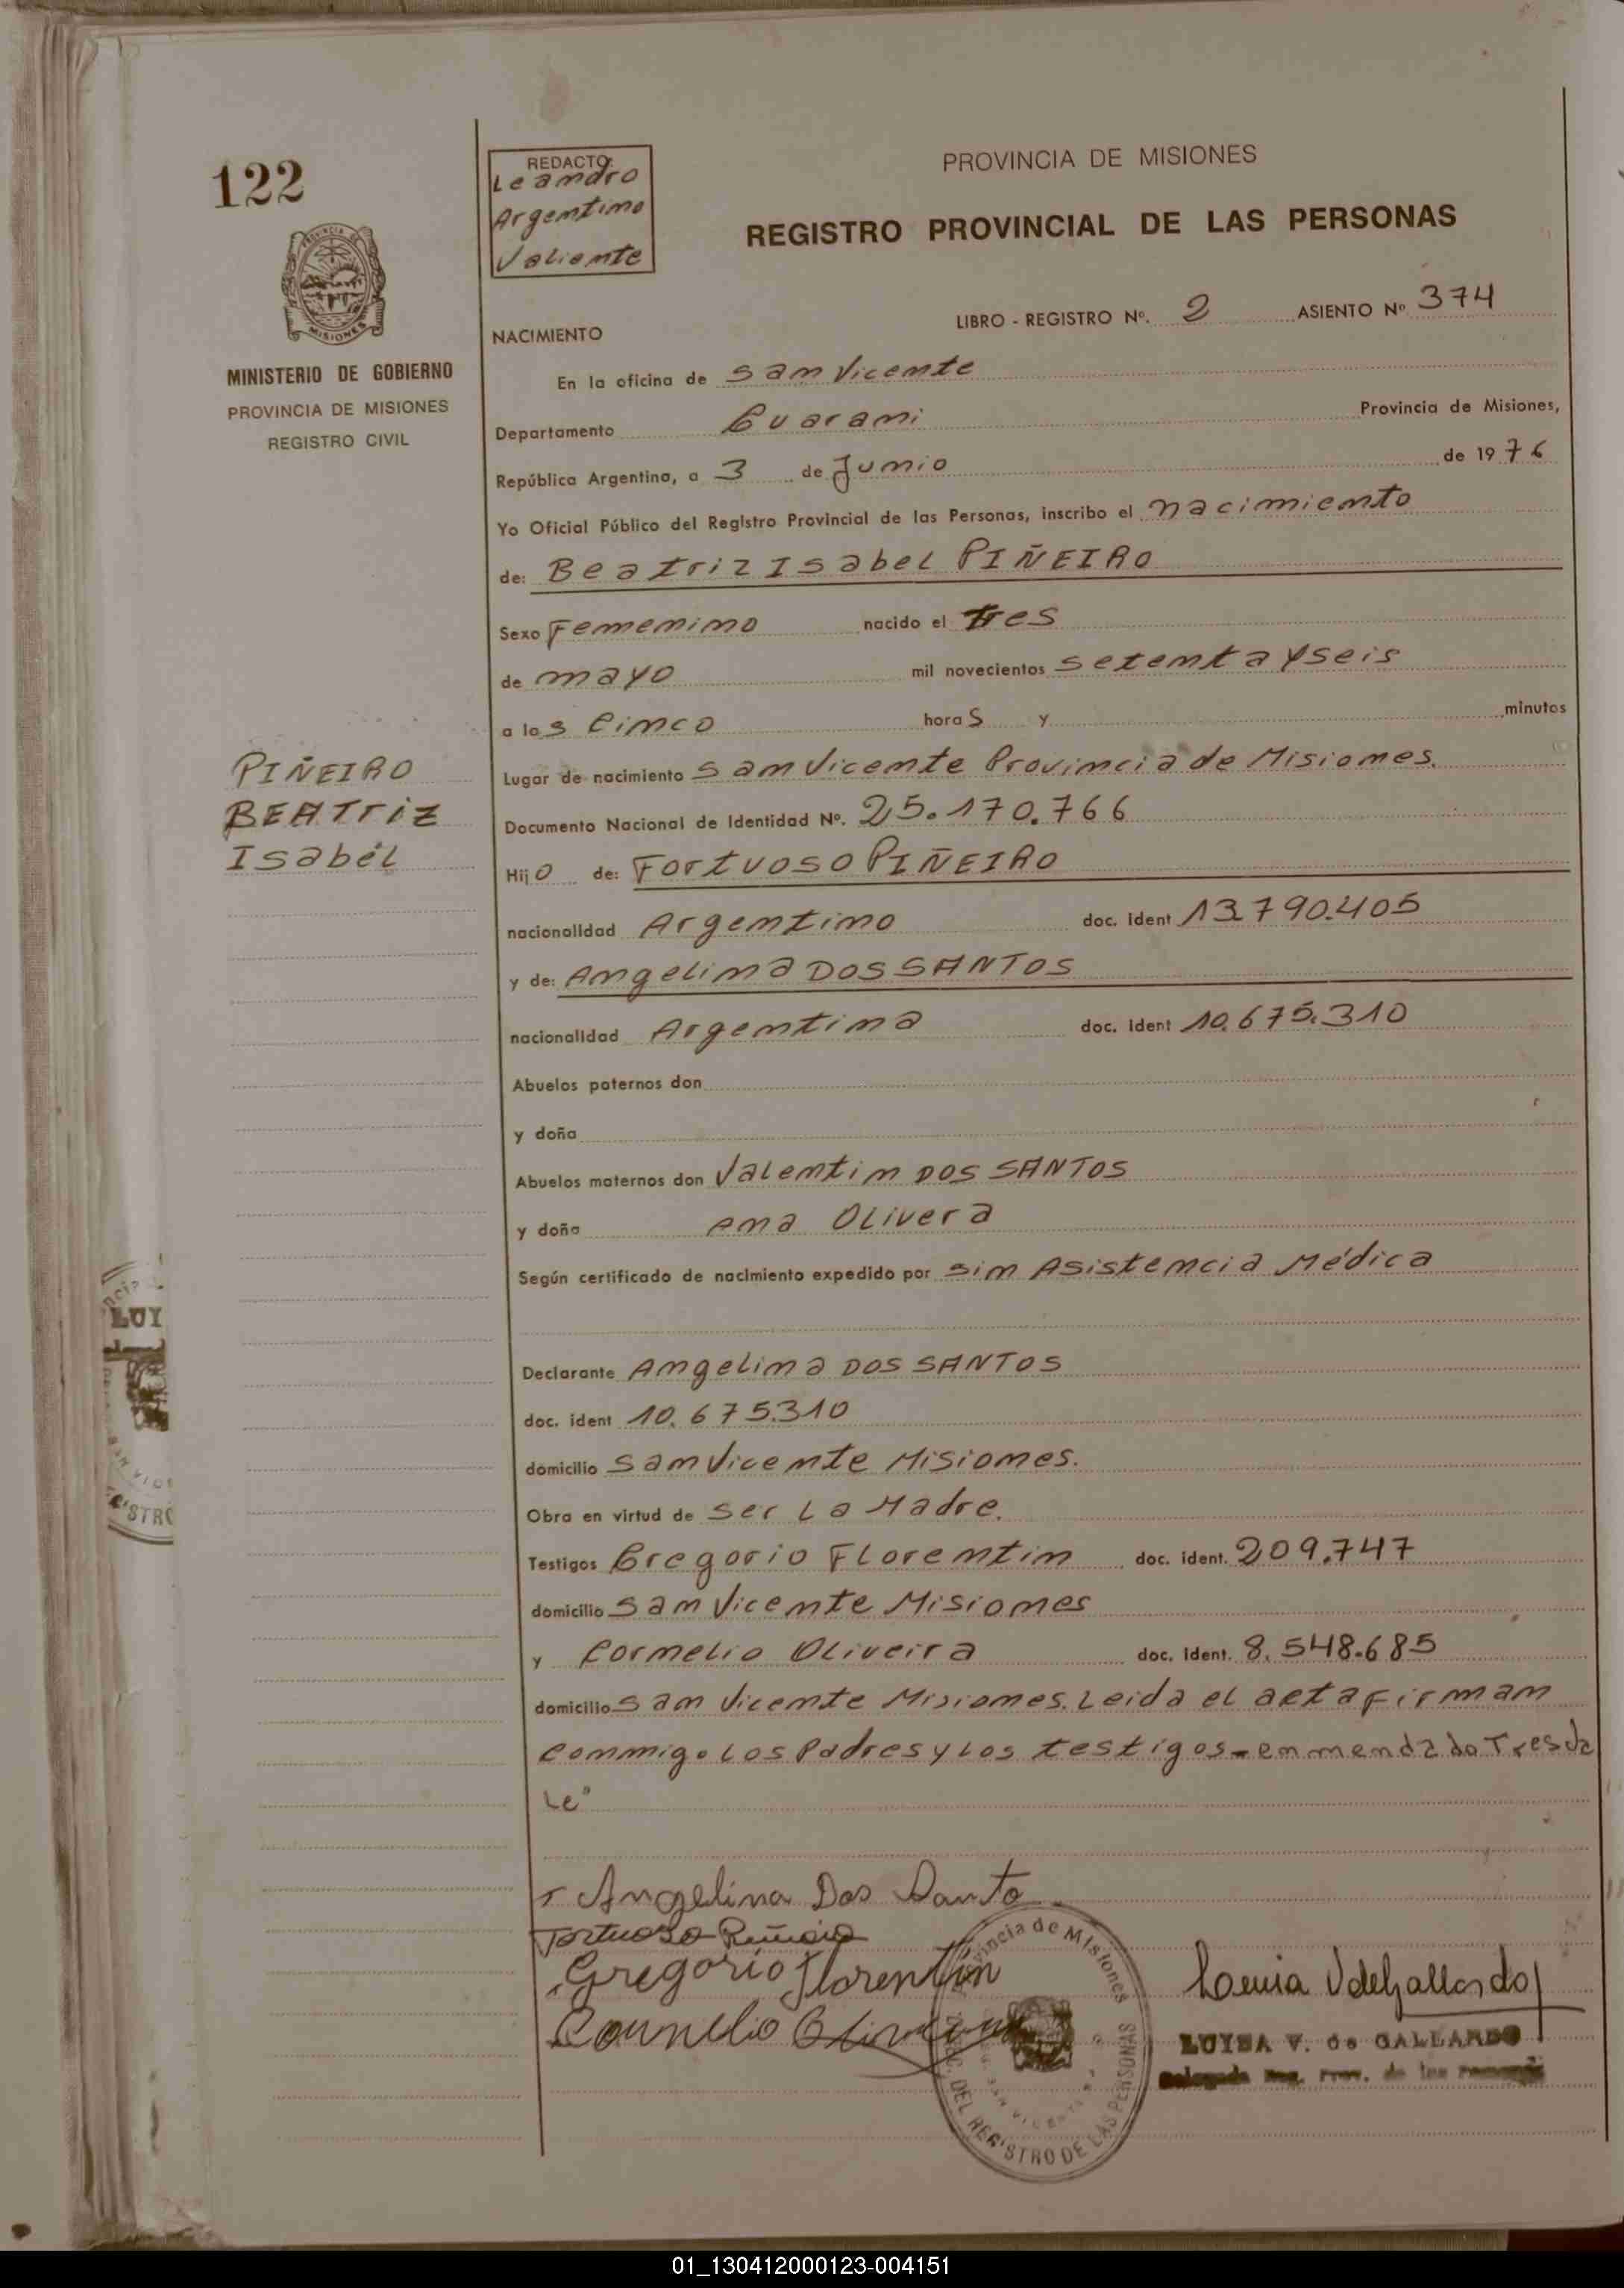 122
REDACTO:
Leandro
Argentino
Valiente
PROVINCIA DE MISIONES
REGISTRO PROVINCIAL DE LAS PERSONAS
MISIONES
MINISTERIO DE GOBIERNO
PROVINCIA DE MISIONES
REGISTRO CIVIL
LIBRO - REGISTRO Nº. 2 ASIENTO Nº 374
NACIMIENTO
En la oficina de San Vicente
Departamento Guarani Provincia de Misiones,
República Argentina, a 3 de Junio de 1976
Yo Oficial Público del Registro Provincial de las Personas, inscribo el nacimiento
de: Beatriz Isabel PIÑEIRO
Sexo Femenino nacido el tres
de mayo mil novecientos setenta y seis
a las Cinco horas y minutos
PIÑEIRO
BEATriz
Isabel
Lugar de nacimiento San Vicente Provincia de Misiones.
Documento Nacional de Identidad Nº. 25.170.766
Hijo de: Fortuoso PIÑEIRO
nacionalidad Argentino doc. ident 13.790.405
y de: Angelina DOS SANTOS
nacionalidad Argentina doc. ident 10.675.310
Abuelos paternos don
y doña
Abuelos maternos don Valentin DOS SANTOS
y doña Ana Olivera
Según certificado de nacimiento expedido por sin Asistencia Médica
LUI
Declarante Angelina DOS SANTOS
doc. ident 10.675.310
domicilio San Vicente Misiones.
Obra en virtud de ser La Madre.
Testigos Gregorio Florentin doc. ident. 209.747
domicilio San Vicente Misiones
y Cornelio Oliveira doc. ident. 8.548.685
domicilio San Vicente Misiones. Leida el acta Firman
conmigo Los Padres y Los testigos - enmendado Tres Va
Le"
Angelina Dos Santo
Fortuoso Piñeiro
Gregorio Florentin
Cornelio Oliveira
Provincia de Misiones
DEL REGISTRO DE LAS PERSONAS
Luisa V de Gallardo
LUISA V. de GALLARDO
Delegada Reg. Prov. de las Personas
01_130412000123-004151